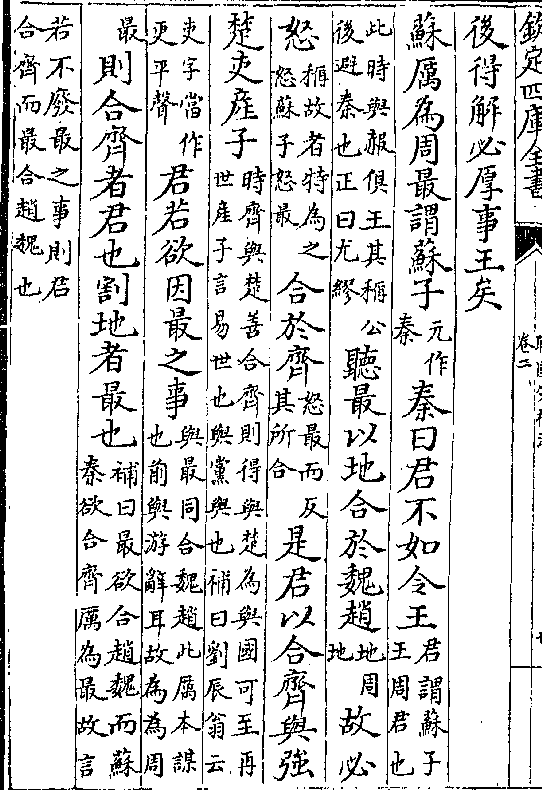 欽定四庫全書
卷二
後得解必厚事王矣
蘇厲為周最謂蘇子元作秦秦曰君不如令王君謂蘇子王周君也
此時與赧俱王其稱公後避秦也正曰尤繆聽最以地合於魏趙地周地故必
怒稱故者特為之怒蘇子怒最合於齊怒最而反其所合是君以合齊與強
楚吏産子時齊與楚善合齊則得與楚為與國可至再世産子言易世也與黨與也補曰劉辰翁云
吏字當作更平聲君若欲因最之事與最同合魏趙此厲本謀也前與游辭耳故為為周
最則合齊者君也割地者最也補曰最欲合趙魏而蘇秦欲合齊厲為最故言
若不廢最之事則君合齊而最合趙魏也